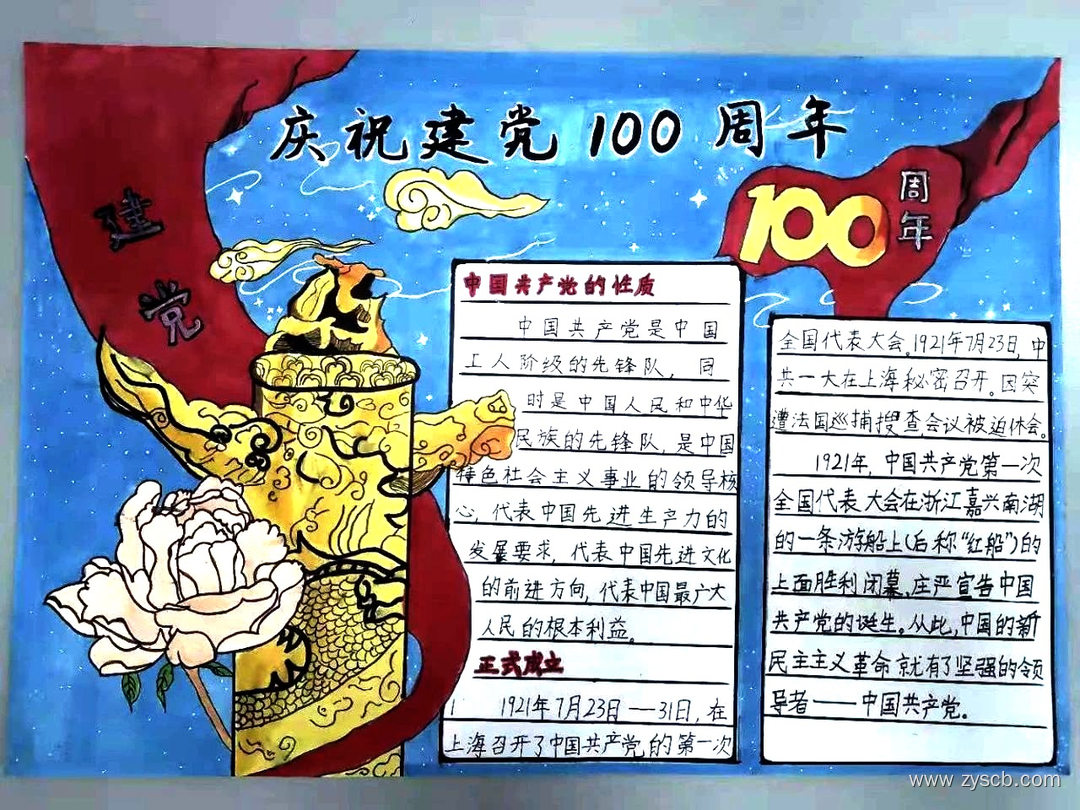 庆祝建党100周年
建党
100周年
中国共产党的性质
中国共产党是中国
工人阶级的先锋队，同
时是中国人民和中华
民族的先锋队，是中国
特色社会主义事业的领导核
心，代表中国先进生产力的
发展要求，代表中国先进文化
的前进方向，代表中国最广大
人民的根本利益。
正式成立
1921年7月23日—31日，在
上海召开了中国共产党的第一次
全国代表大会。1921年7月23日，中
共一大在上海秘密召开。因突
遭法国巡捕搜查，会议被迫休会。
1921年，中国共产党第一次
全国代表大会在浙江嘉兴南湖
的一条游船上(后称“红船”)的
上面胜利闭幕，庄严宣告中国
共产党的诞生。从此，中国的新
民主主义革命就有了坚强的领
导者——中国共产党。
www.zyscb.com